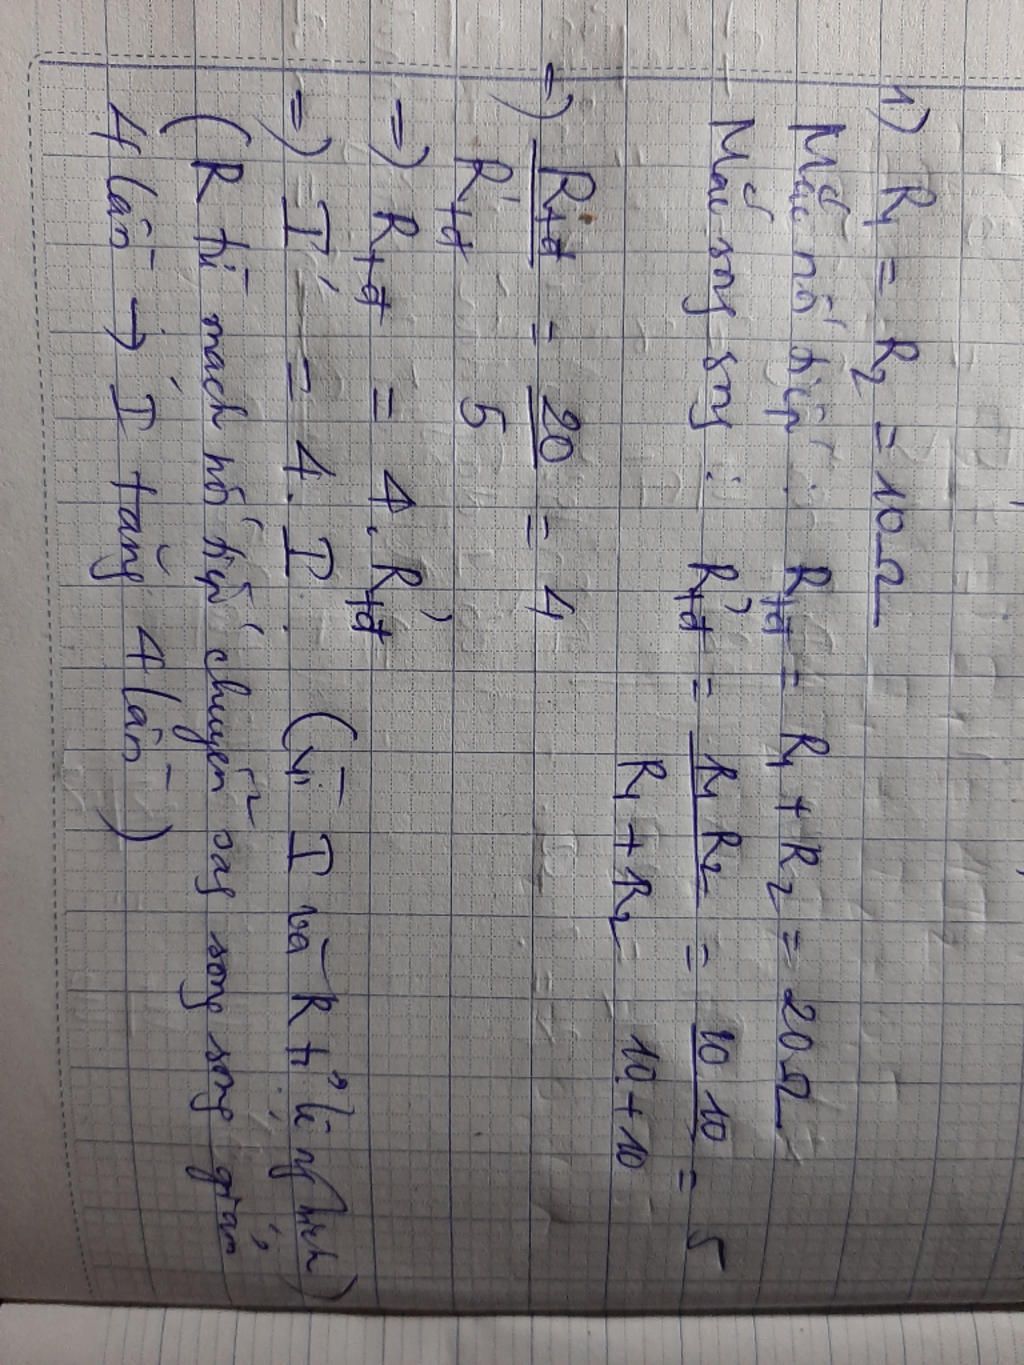 1) R₁ = R₂ = 10Ω
Mắc nối tiếp : Rtđ = R₁ + R₂ = 20Ω
Mắc song song : R'tđ = R₁ R₂ / R₁ + R₂ = 10.10 / 10 + 10 = 5
=) Rtđ / R'tđ = 20 / 5 = 4
=) Rtđ = 4. R'tđ
=) I' = 4. I. (vì I và R tỉ lệ nghịch)
(R từ mạch nối tiếp chuyển sang song song giảm
4 lần → I tăng 4 lần)